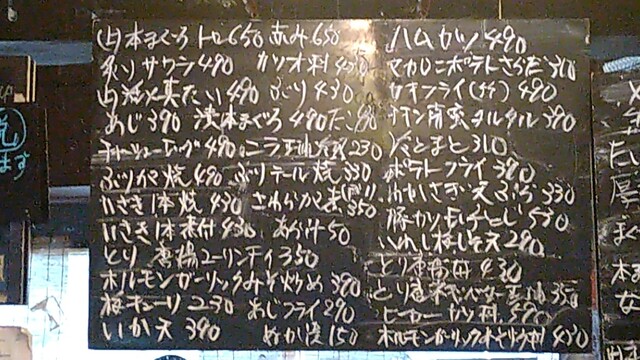 本まぐろ トロ650 赤み650
炙りサワラ490 カツオ刺430
真たい490 ぶり430
あじ390 漬本まぐろ490
チャーシューエッグ490 ニラ玉 230
ぶりカマ焼490 ぶりテール焼330
いさき1本焼430 さわらかま 350
いさき1本煮付430 あら汁50
とり唐揚ユーリンチィ350
ホルモンガーリックみそ炒め390
梅キューリ230 あじフライ290
いか天390 ぬか漬150
ハムカツ490
マカロニポテトさらだ310
カキフライ 490
チキン南蛮タルタル390
冷とまと310
ポテトフライ390
わかさぎ天ぷら330
豚カツ玉子とじ530
いわし梅しそ天290
とり唐揚丼430
とり 350
ヒレカツ丼 590
ホルモンガーリック 430